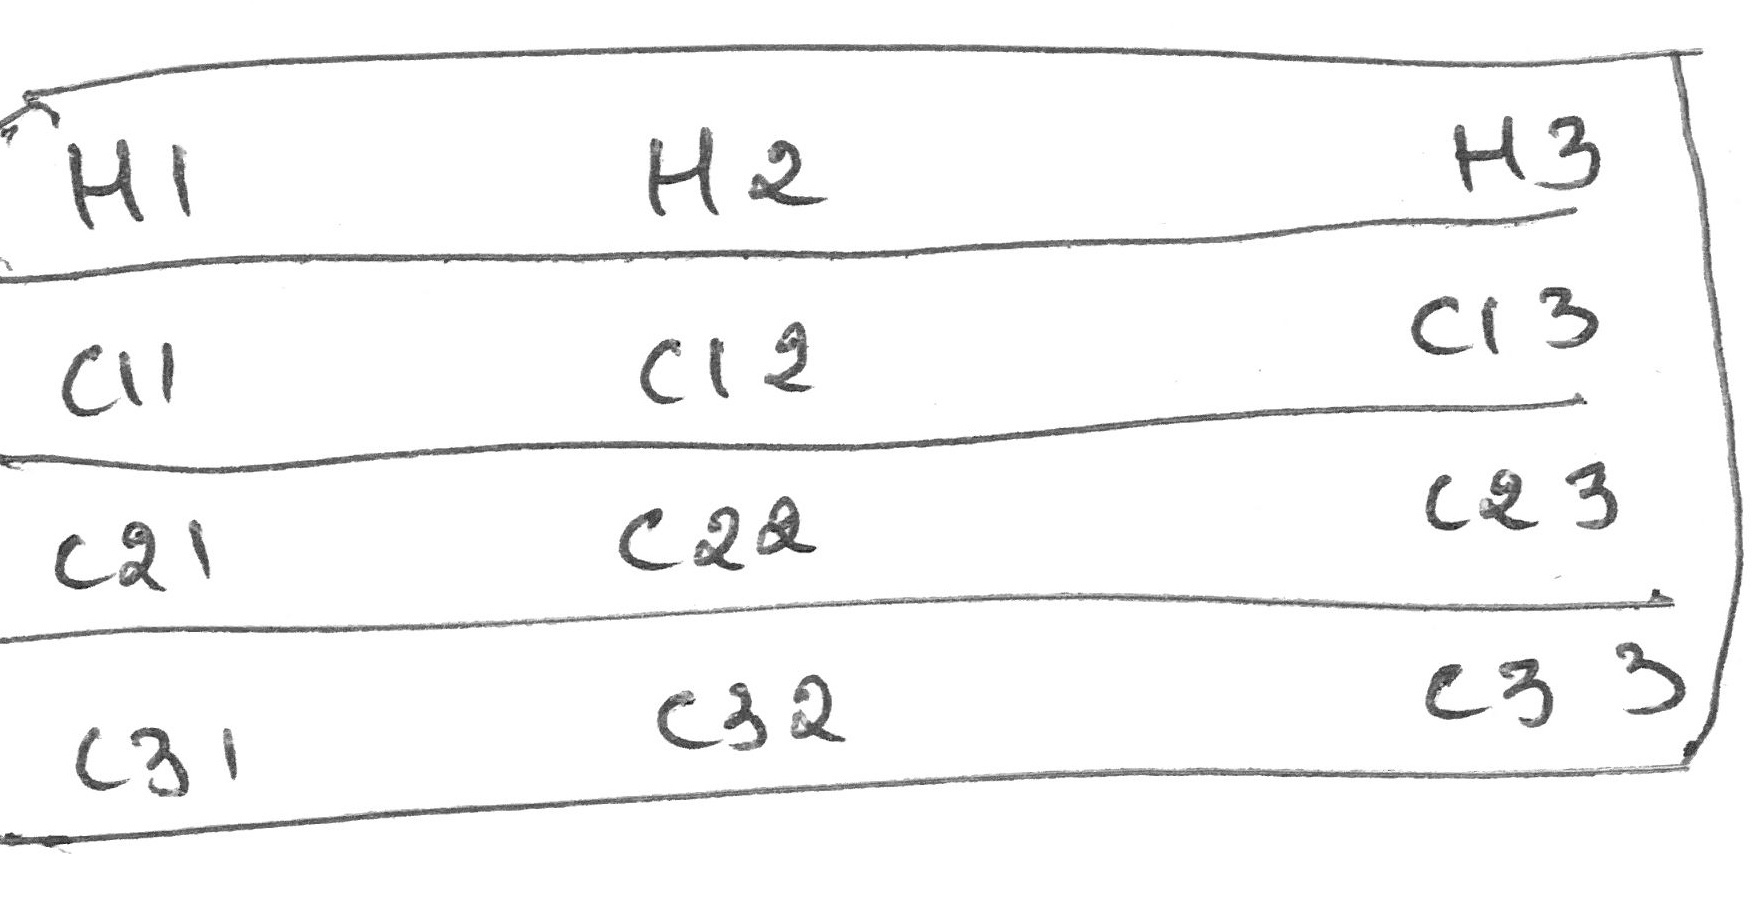 H1 H2 H3
C11 C12 C13
C21 C22 C23
C31 C32 C33